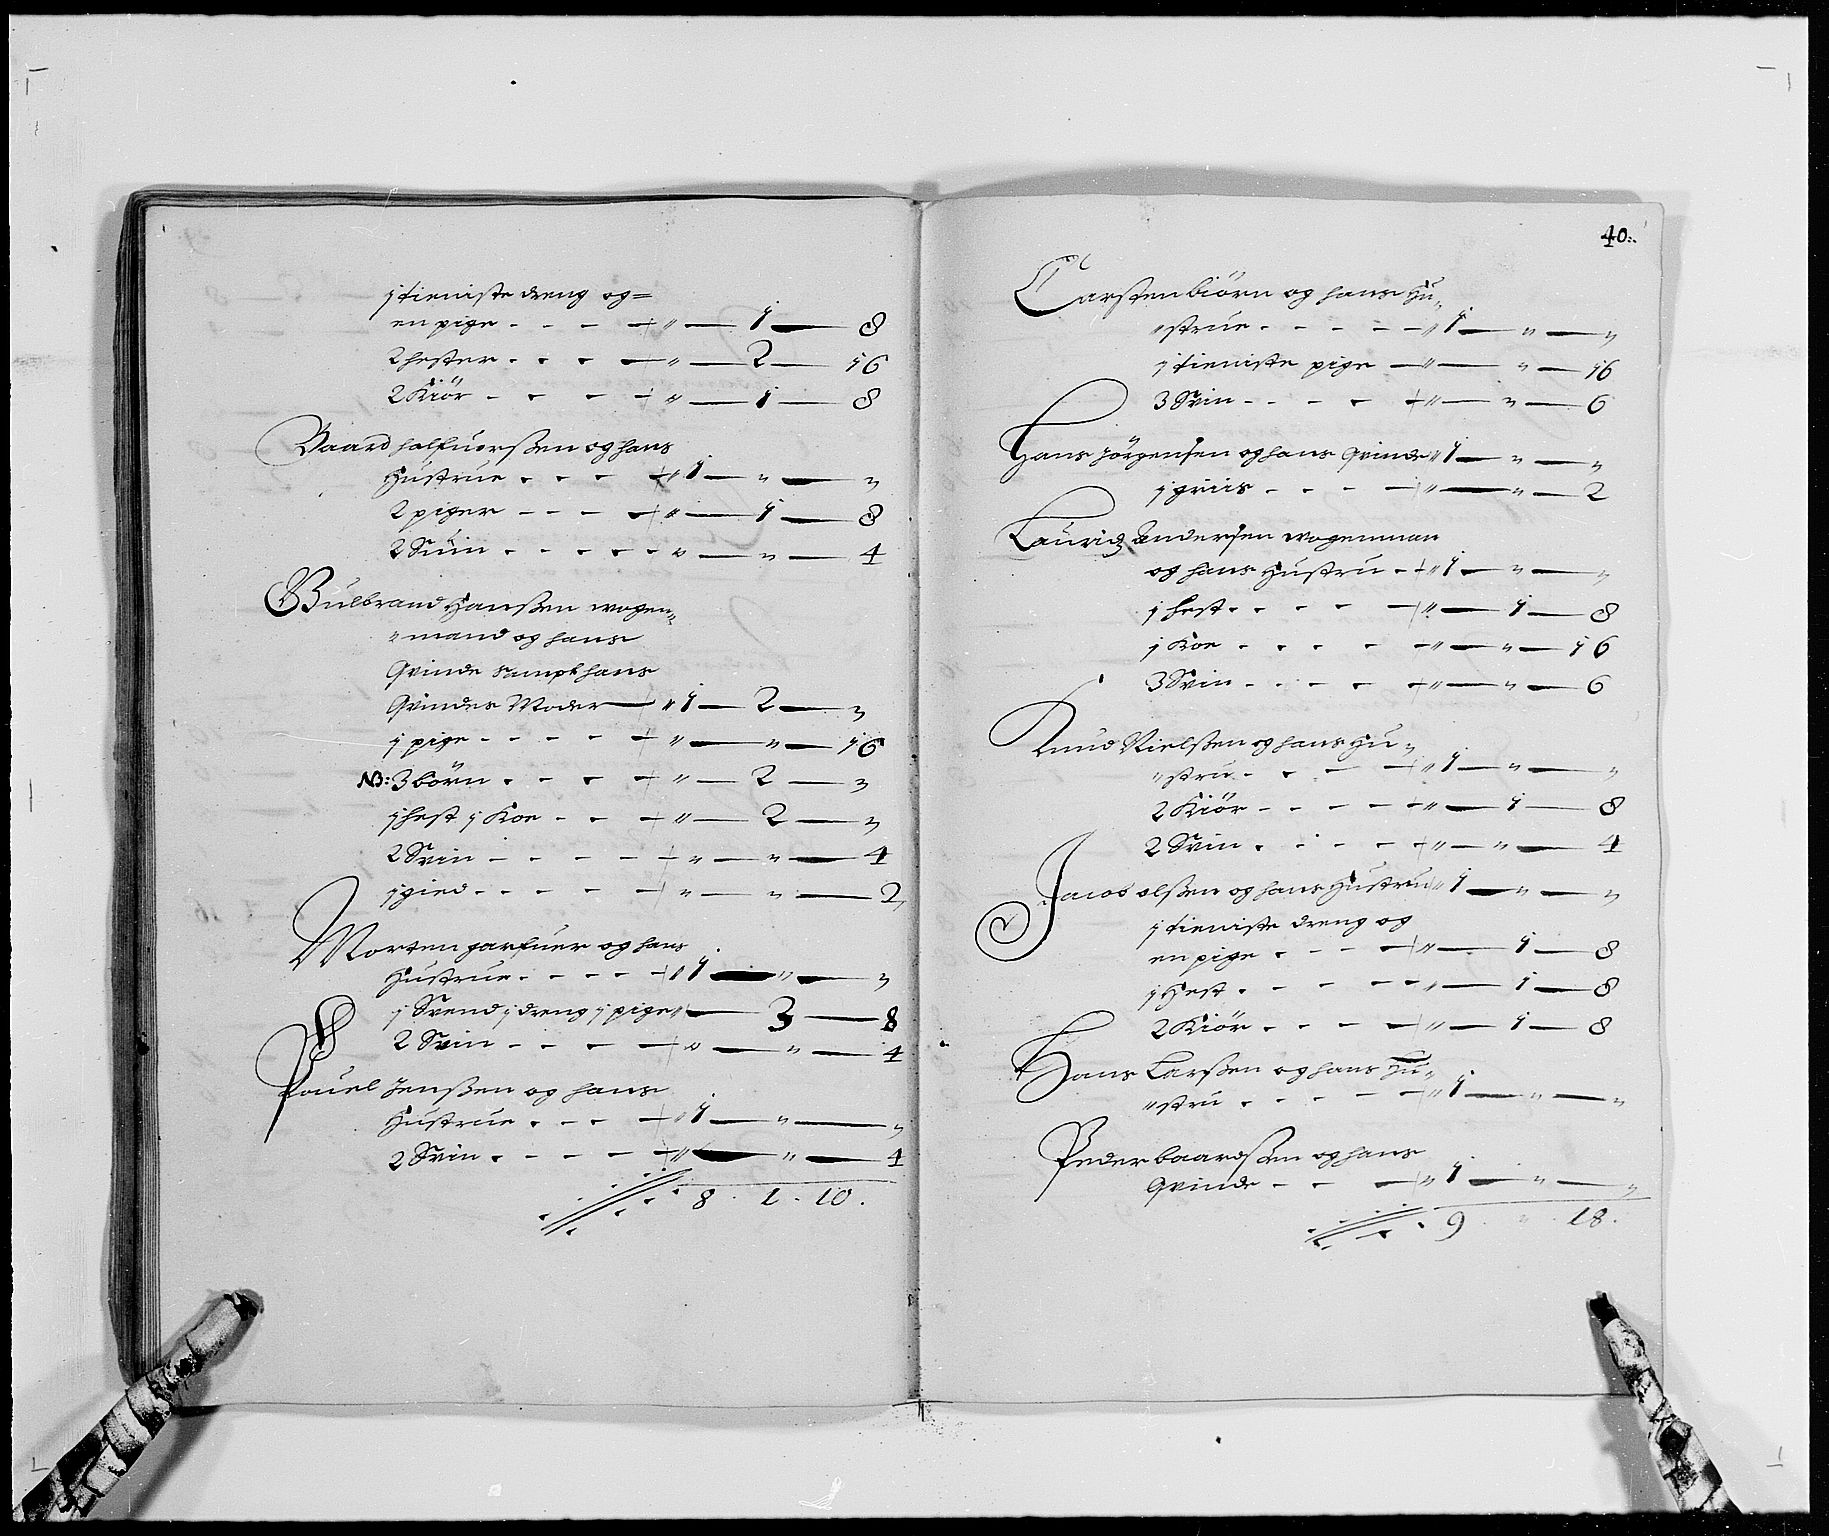 1 tieniste dreng og=
en pige - - - - " — 1 — 8
2 hester - - - - " — 2 — 16
2 Kiör - - - - " — 1 — 8
Baard halfuorßen og hans
Hustrue - - - - " 1 — " — "
2 piger - - - - " — 1 — 8
2 Suin - - - - " — " — 4
Gulbrand Hanßen wogen„
„mand og hans
Qvinde sampt hans
Qvindes Moder — " 1 — 2 — "
1 pige - - - - " — " — 16
NB: 3 börn - - - - " — 2 — "
1 hest 1 Koe - - - " — 2 — "
2 Svin - - - - " — " — 4
1 gied - - - - " — " — 2
Morten garfuer og hans
Hustrue - - - - " 1 — " — "
1 Svend 1 dreng 1 pige " — 3 — 8
2 Svin - - - - " — " — 4
Pouel Jenßen og hans
Hustrue - - - - " 1 — " — "
2 Svin - - - - " — " — 4
8 . 1 . 10 .
40:.
Carsten biörn og hans Hu„
„strue - - - - " 1 — " — "
1 tieniste pige — " — " — 16
3 Svin - - - - " — " — 6
Hans Jörgensen og hans Qvinde " 1 — " — "
1 griis - - - - " — " — 2
Lauridz Andersen wogenman
og hans Hustru - " 1 — " — "
1 hest - - - - " — 1 — 8
1 Koe - - - - " — " — 16
3 Svin - - - - " — " — 6
Knud Nielßen og hans Hu„
„stru - - - - " 1 — " — "
2 Kiör - - - - " — 1 — 8
2 Svin - - - - " — " — 4
Jacob olßen og hans Hustru " 1 — " — "
1 tieniste dreng og
en pige - - - - " — 1 — 8
1 Hest - - - - " — 1 — 8
2 Kiör - - - - " — 1 — 8
Hans Larßen og hans Hu„
„stru - - - - " 1 — " — "
Peder baardßen og hans
Qvinde - - - " 1 — " — "
9 . " . 18 .